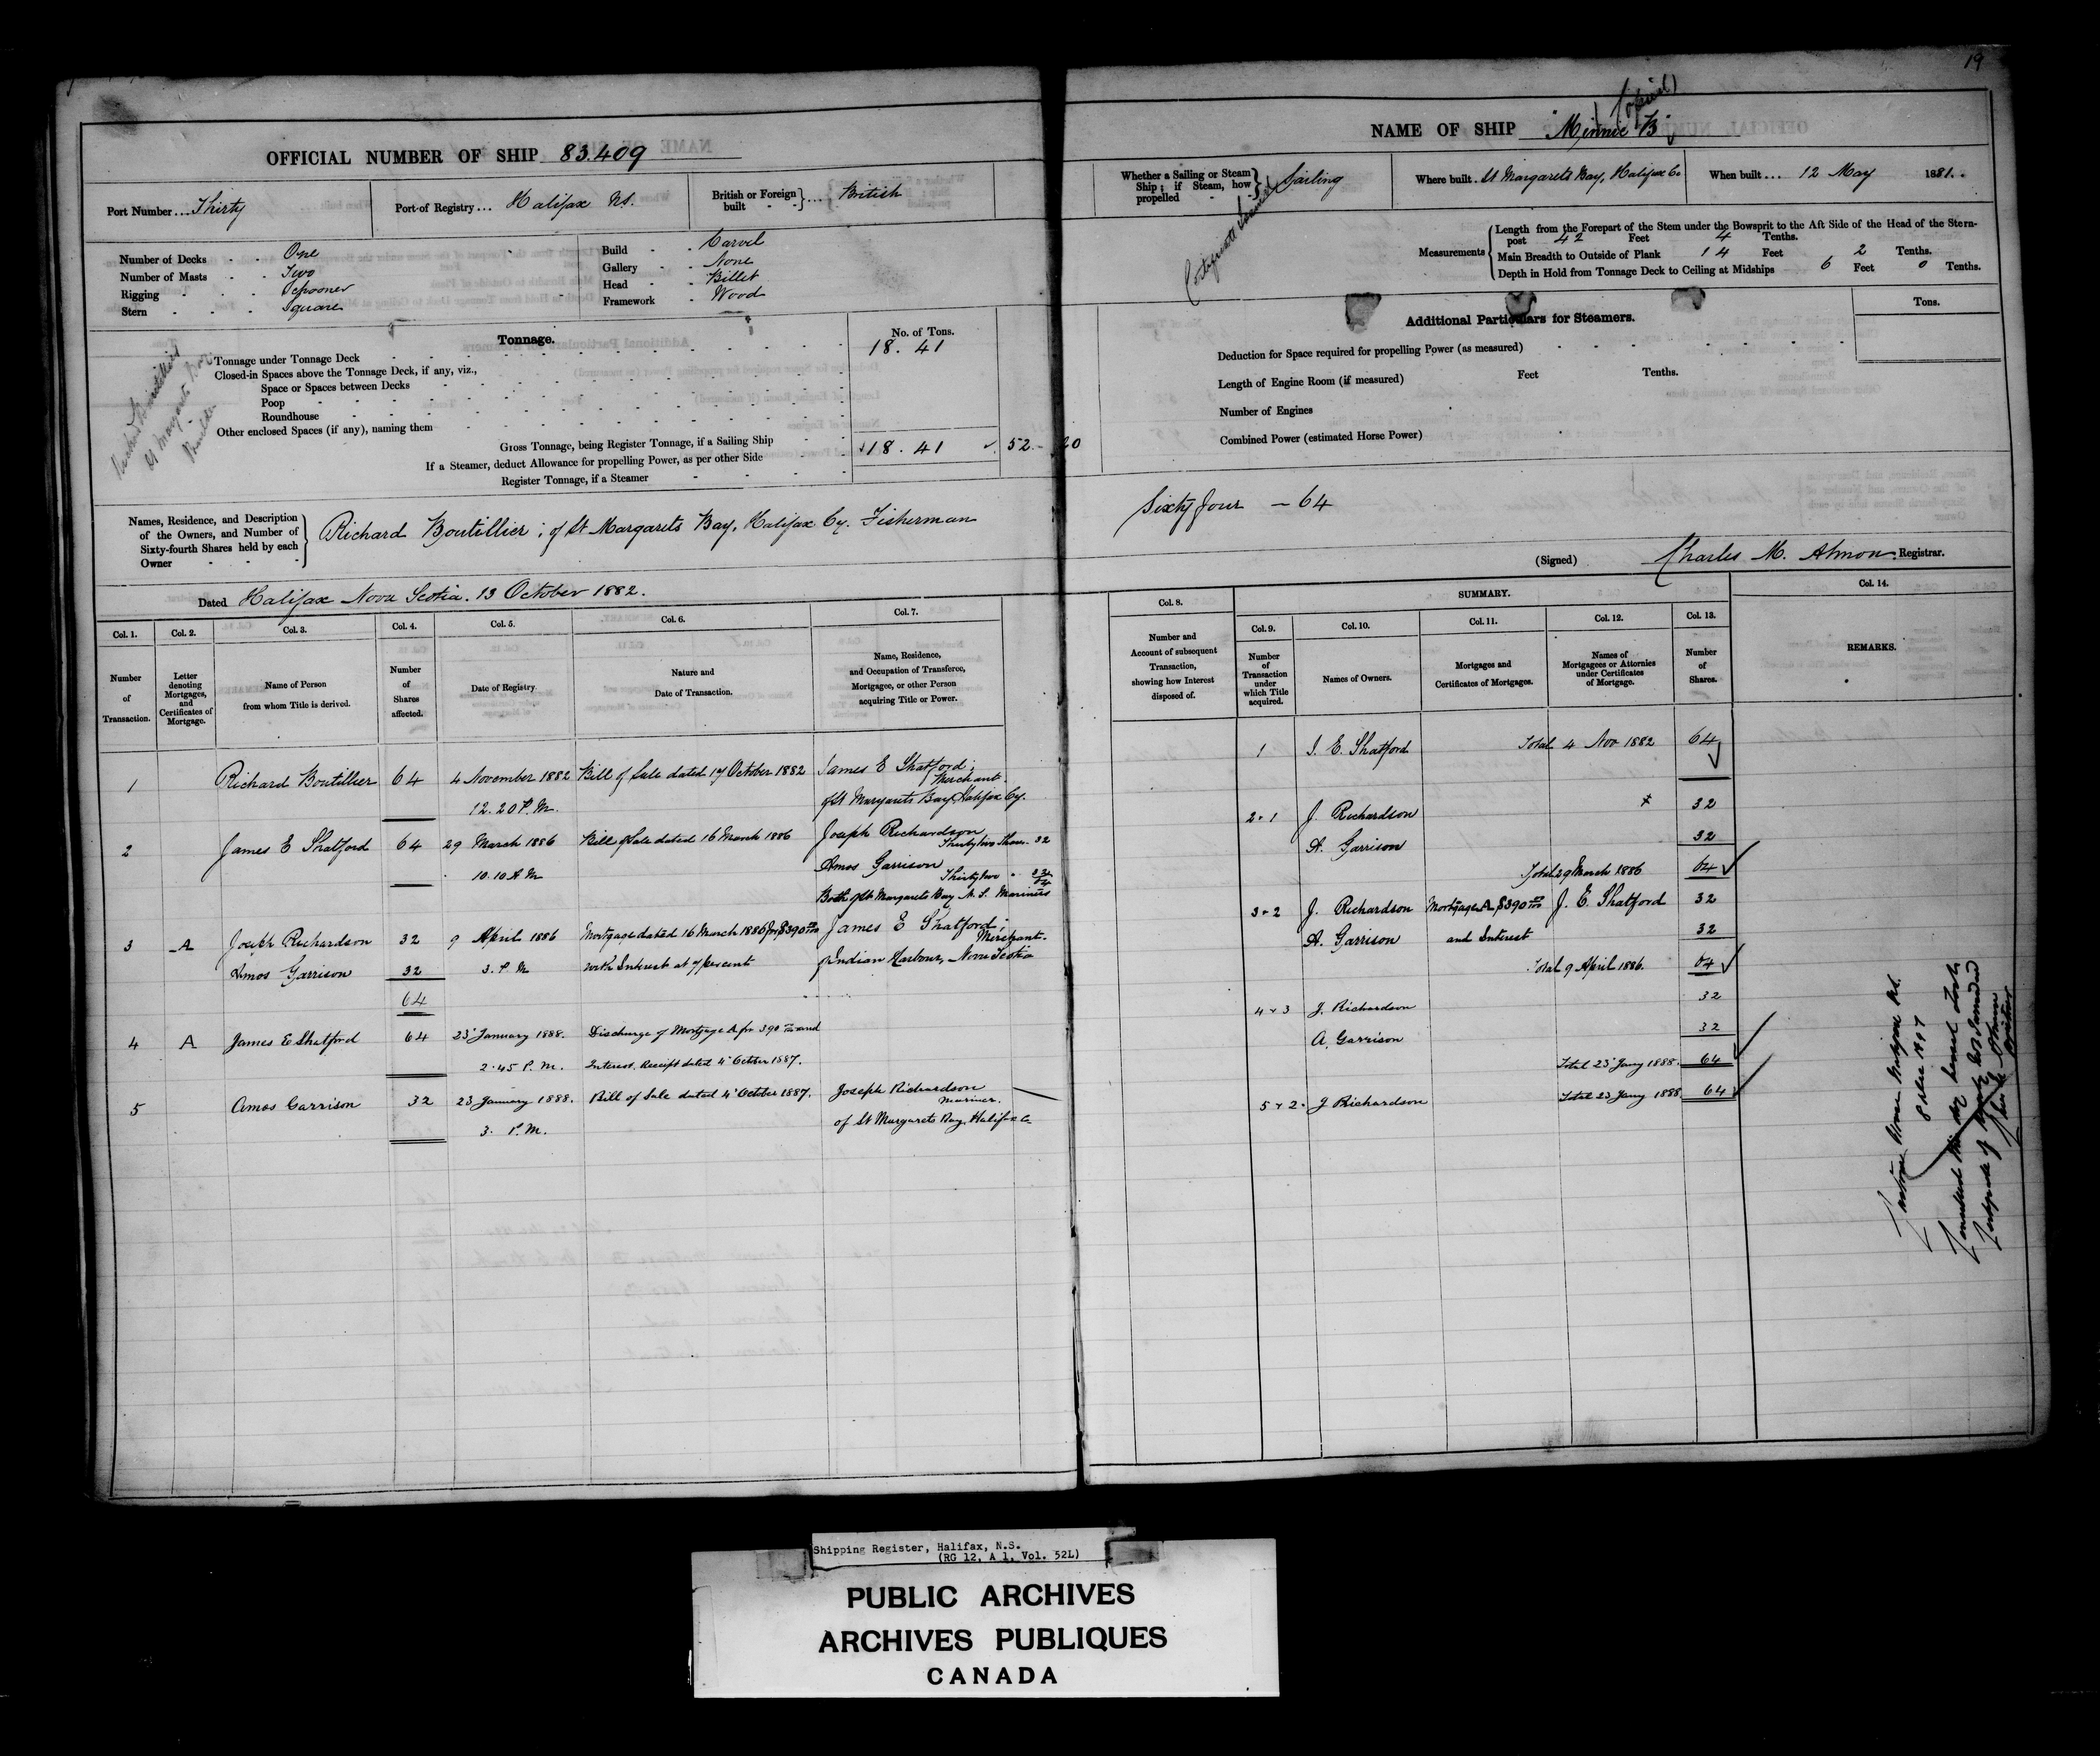 19
OFFICIAL NUMBER OF SHIP 83.409
Port Number ... Thirty
Port of Registry ... Halifax NS.
British or Foreign built } ... British
Number of Decks - - One
Number of Masts - - Two
Rigging - - - Schooner
Stern - - - Square
Build - - Carvel
Gallery - - None
Head - - Billet
Framework - Wood
Tonnage.
No. of Tons.
Tonnage under Tonnage Deck 18. 41
Closed-in Spaces above the Tonnage Deck, if any, viz.,
Space or Spaces between Decks
Poop
Roundhouse
Other enclosed Spaces (if any), naming them
Gross Tonnage, being Register Tonnage, if a Sailing Ship 18. 41 52 - 20
If a Steamer, deduct Allowance for propelling Power, as per other Side
Register Tonnage, if a Steamer
St Margarets
Builder
Names, Residence, and Description of the Owners, and Number of Sixty-fourth Shares held by each Owner
Richard Boutillier; of St Margarets Bay, Halifax Cy. Fisherman
Dated Halifax Nova Scotia. 13 October 1882.
Col. 1. Col. 2. Col. 3. Col. 4. Col. 5. Col. 6. Col. 7.
Number of Transaction.
Letter denoting Mortgages, and Certificates of Mortgage.
Name of Person from whom Title is derived.
Number of Shares affected.
Date of Registry.
Nature and Date of Transaction.
Name, Residence, and Occupation of Transferee, Mortgagee, or other Person acquiring Title or Power.
1 Richard Boutillier 64 4 November 1882 Bill of Sale dated 17 October 1882 James E Shatford; Merchant.
12.20 P.M. of St Margarets Bay, Halifax Cy.
2 James E Shatford 64 29 March 1886 Bill of Sale dated 16 March 1886 Joseph Richardson Thirty two Shares. 32
10.10 A M Amos Garrison Thirty two " 32
64
Both of St Margarets Bay N. S. Mariners
3 A Joseph Richardson 32 9 April 1886 Mortgage dated 16 March 1886 for $390 James E Shatford; Merchant.
Amos Garrison 32 3. P M with Interest at 7 percent of Indian Harbour, Nova Scotia
64
4 A James E Shatford 64 23 January 1888. Discharge of Mortgage A for 390 and
2.45 P. M. Interest. Receipt dated 4 October 1887.
5 Amos Garrison 32 23 January 1888. Bill of Sale dated 4 October 1887. Joseph Richardson Mariner.
3. P.M. of St Margarets Bay, Halifax Co
NAME OF SHIP "Minnie B"
Whether a Sailing or Steam Ship; if Steam, how propelled } Sailing
Where built. St Margarets Bay, Halifax Co
When built ... 12 May 1881.
Certificate
Measurements
Length from the Forepart of the Stem under the Bowsprit to the Aft Side of the Head of the Stern-
post 42 Feet 4 Tenths.
Main Breadth to Outside of Plank 14 Feet 2 Tenths.
Depth in Hold from Tonnage Deck to Ceiling at Midships 6 Feet 0 Tenths.
Additional Particulars for Steamers.
Tons.
Deduction for Space required for propelling Power (as measured)
Length of Engine Room (if measured) Feet Tenths.
Number of Engines
Combined Power (estimated Horse Power)
Sixty four - 64
(Signed) Charles M. Almon. Registrar.
Col. 8. SUMMARY. Col. 14.
Col. 9. Col. 10. Col. 11. Col. 12. Col. 13.
Number and Account of subsequent Transaction, showing how Interest disposed of.
Number of Transaction under which Title acquired.
Names of Owners.
Mortgages and Certificates of Mortgages.
Names of Mortgagees or Attornies under Certificates of Mortgage.
Number of Shares.
REMARKS.
1 J. E. Shatford Total 4 Nov 1882 64
2 " 1 J. Richardson x 32
A. Garrison 32
Total 29 March 1886 64
3 " 2 J. Richardson Mortgage A $390 J. E. Shatford 32
A. Garrison and Interest 32
Total 9 April 1886. 64
4 " 3 J. Richardson 32
A. Garrison 32
Total 23 Jany 1888. 64
5 " 2 J Richardson Total 23 Jany 1888 64
Shipping Register, Halifax, N.S.
(RG 12, A 1, Vol. 52L)
PUBLIC ARCHIVES
ARCHIVES PUBLIQUES
CANADA